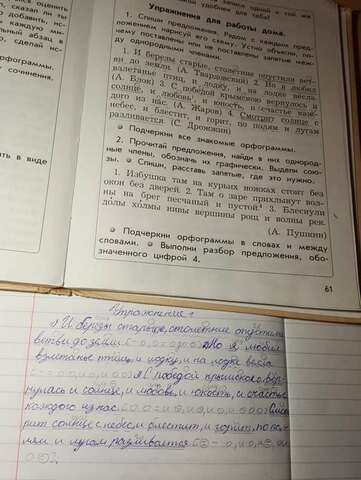 Упражнения для работы дома.
1. Спиши предложения. Рядом с каждым пред-
ложением нарисуй его схему. Устно объясни, по-
чему поставлены или не поставлены запятые меж-
ду однородными членами.
1. И берёзы старые, столетние опустили вет-
ви до земли. (А. Твардовский) 2. Но я любил
взлетанье птиц, и лодку, и на лодке вёсла.
(А. Блок) 3. С победой крымскою вернулось и
солнце, и любовь, и юность, и счастье каж-
дого из нас. (А. Жаров) 4. Смотрит солнце с
небес, и блестит, и горит, по полям и лугам
разливается. (С. Дрожжин)
Подчеркни все знакомые орфограммы.
2. Прочитай предложения, найди в них однород-
ные члены, обозначь их графически. Выдели сою-
зы. Спиши, расставь запятые, где это нужно.
1. Избушка там на курьих ножках стоит без
окон без дверей. 2. Там о заре прихлынут вол-
ны на брег песчаный и пустой. 3. Блеснули
долы холмы нивы вершины рощ и волны рек.
(А. Пушкин)
Подчеркни орфограммы в словах и между
словами. Выполни разбор предложения, обо-
значенного цифрой 4.
61
орфограммы.
сочинения.
ить в виде
Упражнение 1
1) И берёзы старые, столетние опустили
ветви до земли.
2) Но я любил
взлетанье птиц, и лодку, и на лодке вёсла
3) С победой крымскою вер-
нулось и солнце, и любовь, и юность, и счастье
каждого из нас.
Смот-
рит солнце с небес, и блестит, и горит, по по-
лям и лугам разливается.